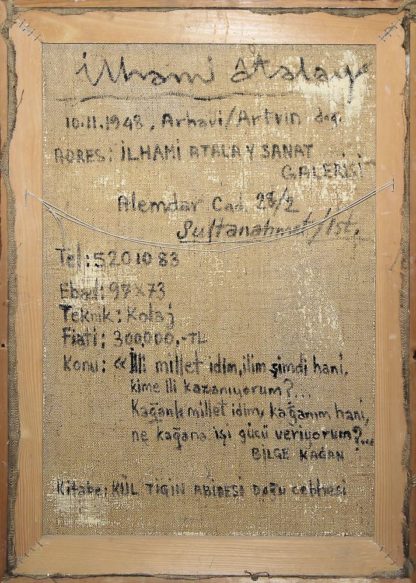 ilhami Atalay
10.11.1948, Arhavi/Artvin doğ.
ADRES: İLHAMİ ATALAY SANAT
GALERİSİ
Alemdar Cad. 28/2
Sultanahmet/İst.
Tel: 520 10 83
Ebad: 97x73
Teknik: Kolaj
Fiatı: 300000.-TL
Konu: «İlli millet idim, ilim şimdi hani,
kime ili kazanıyorum?...
Kağanlı millet idim, kağanım hani,
ne kağana işi gücü veriyorum?...
BİLGE KAĞAN
Kitabe: KÜL TİGİN ABİDESİ DOĞU CEBHESİ